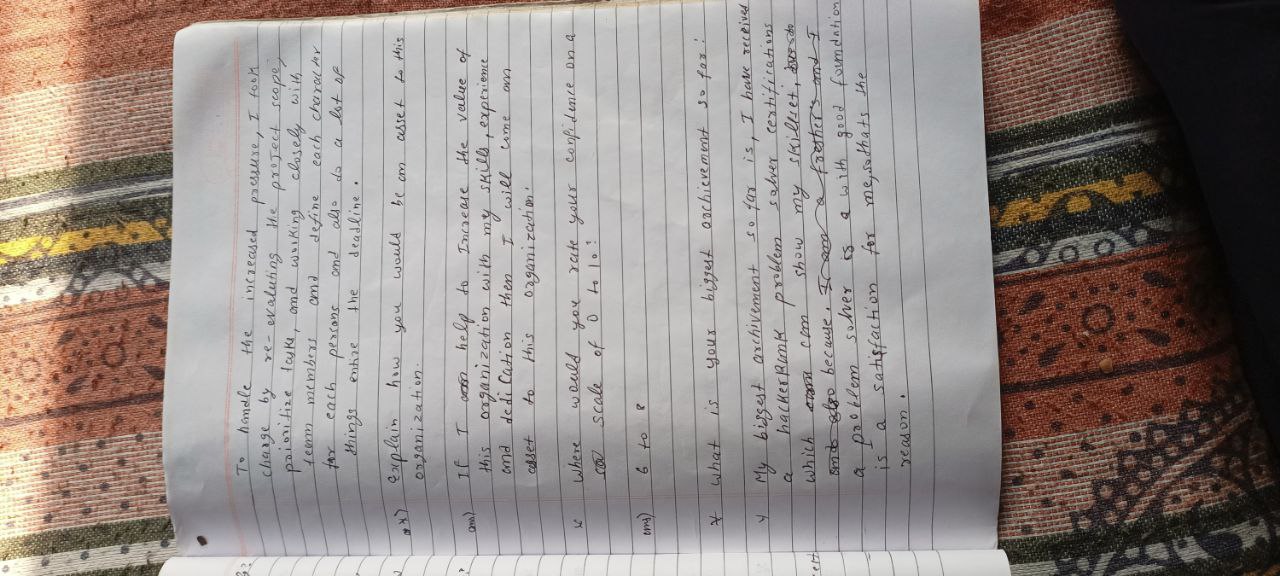 To handle the increased pressure, I took
charge by re-evaluting the project scope,
prioritize tasks, and working closely with
team members and define each character
for each persons and also do a lot of
things entire the deadline.
*) Explain how you would be an asset to this
organization.
ans) If I help to Increase the value of
this organization with my skills, experience
and dedication then I will come an
asset to this organization.
* Where would you rate your confidence on a
scale of 0 to 10?
ans) 6 to 8
* What is your biggest archievement so far?
My biggest archivement so far is, I have received
a hackerRank problem solver certifications
which can show my skillset,
because. I am a fresher's and I
a problem solver is a with good foundation
is a satisfaction for me, so thats the
reason.